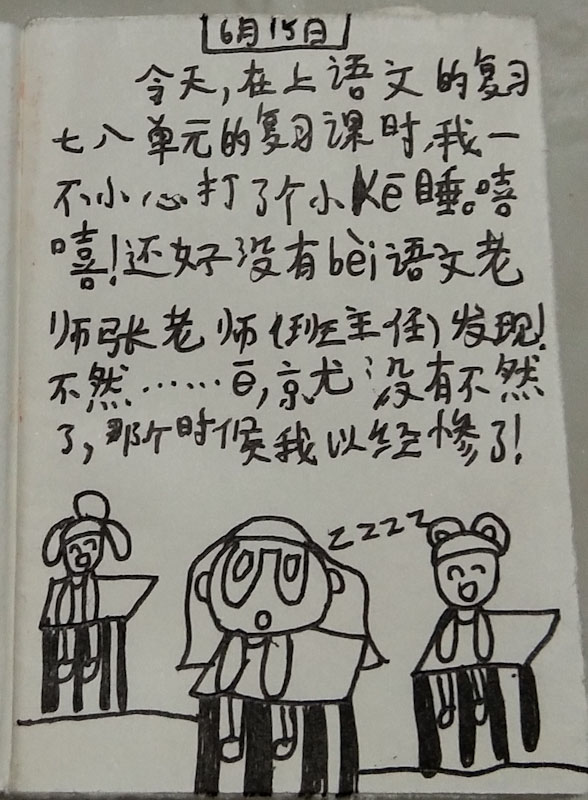 6月15日
今天,在上语文的复习
七八单元的复习课时,我一
不小心打了个小kē睡。嘻
嘻!还好没有bèi语文老
师张老师(班主任)发现!
不然……ē,京尤没有不然
了,那个时候我以经惨了!
zzzz